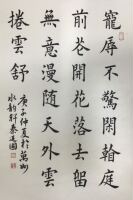 寵辱不驚閑看庭
前花開花落去留
無意漫隨天外雲
捲雲舒
庚子仲夏於萬州
水韵軒秦